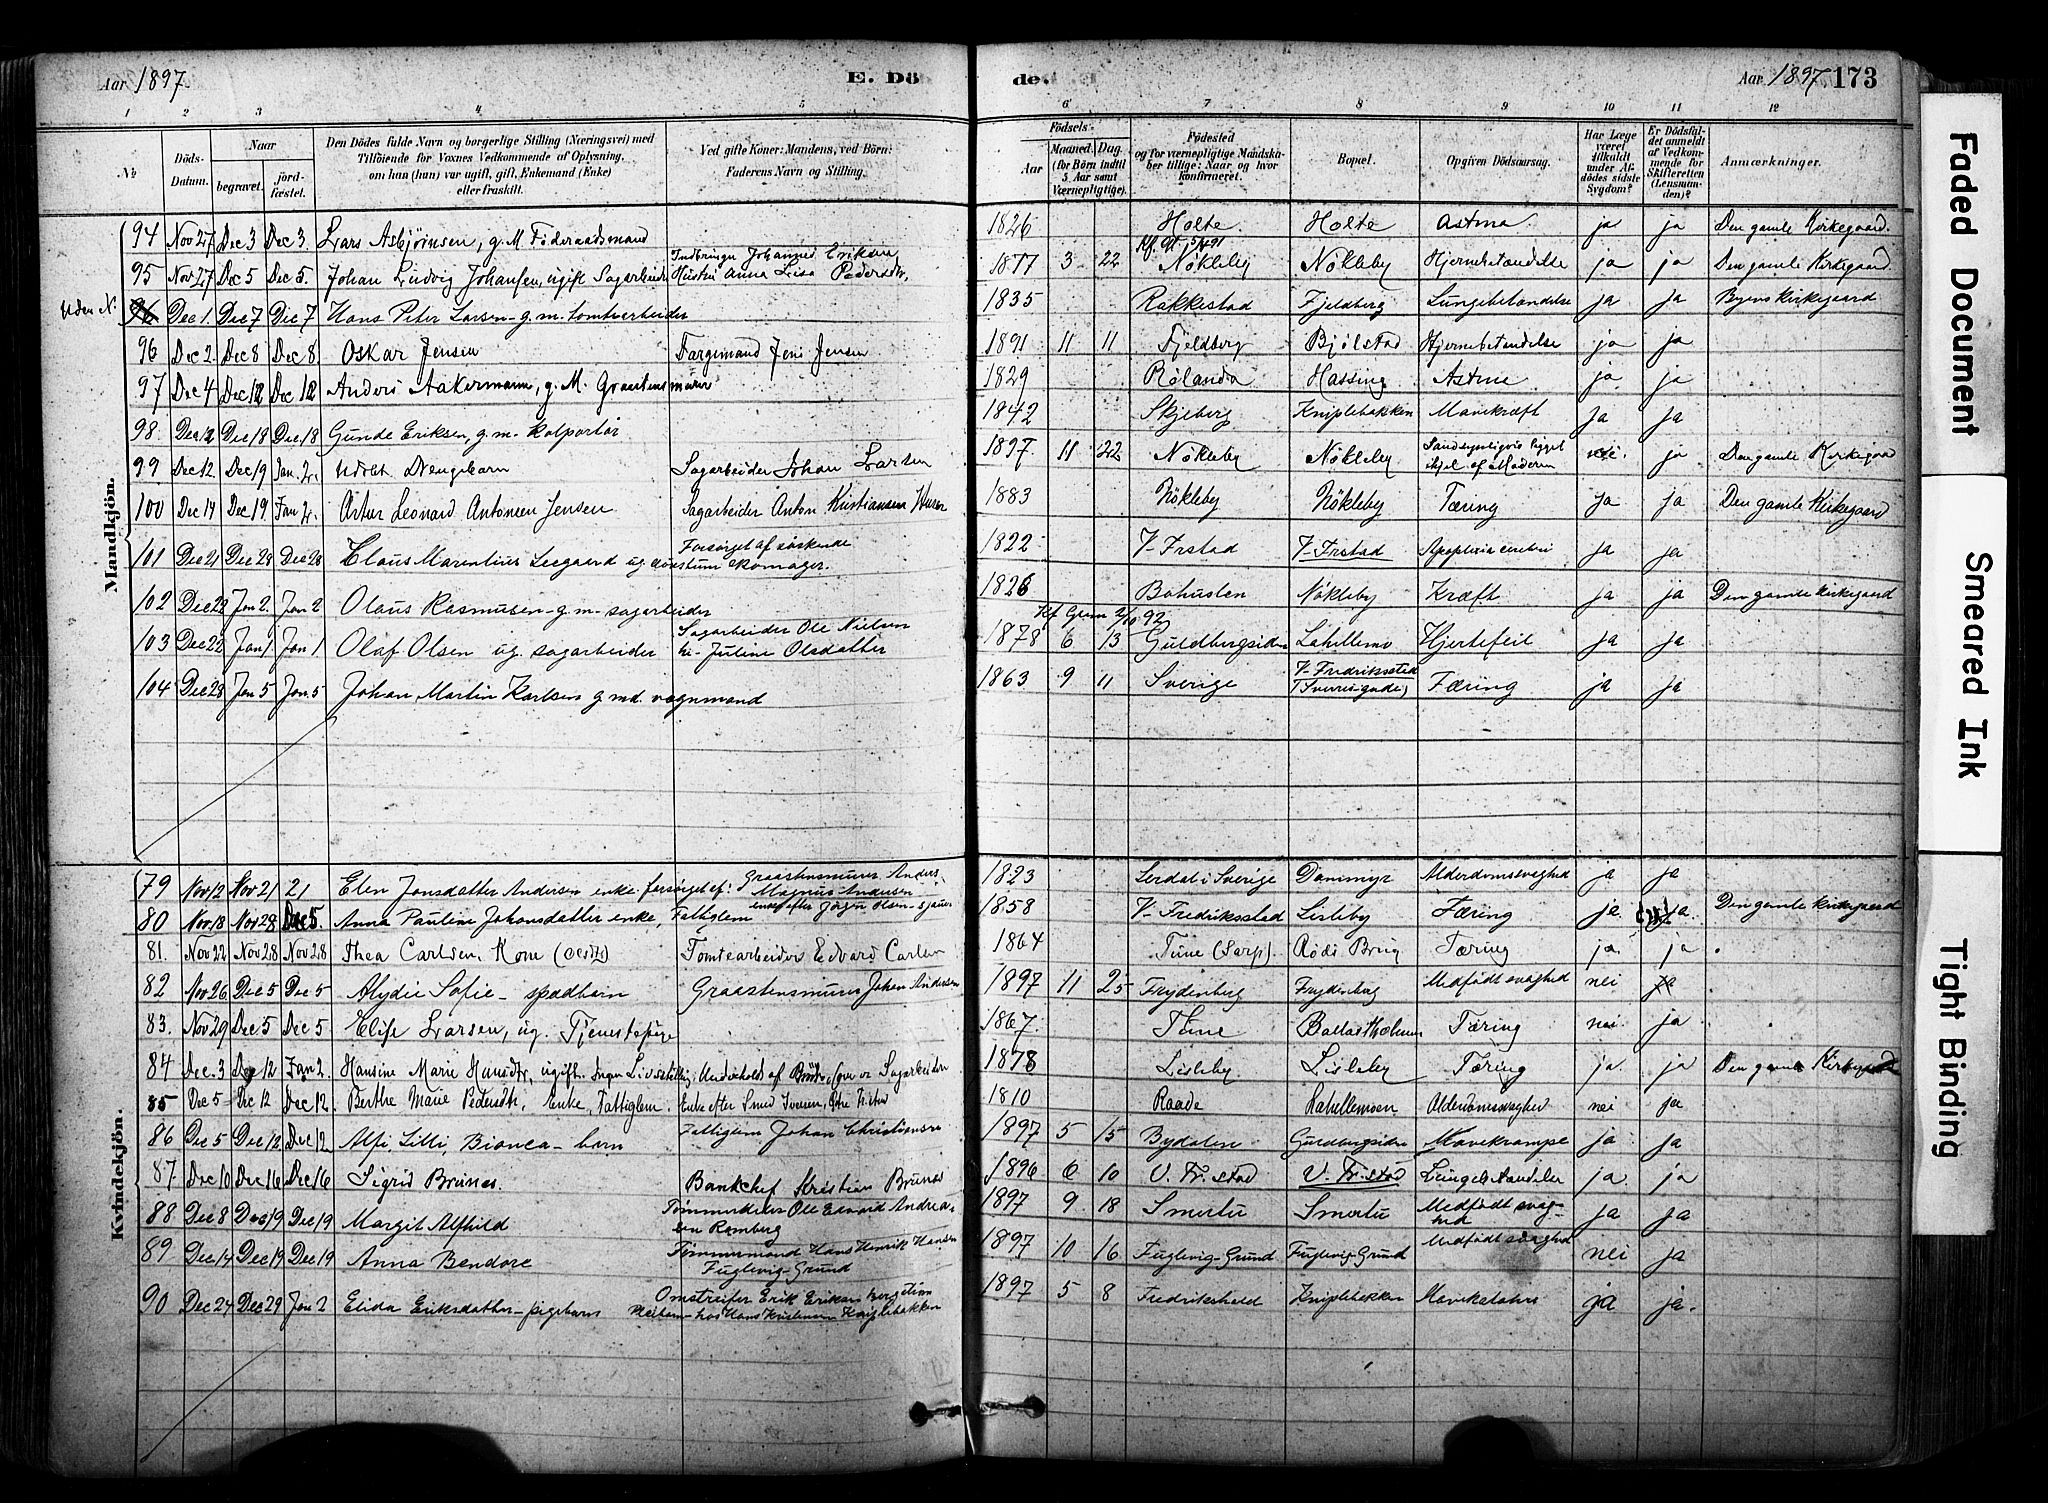 Aar 1897. E. Dö
de. Aar 1897 173
1 2 3 4 5 6 7 8 9 10 11 12
№ Döds-Datum. Naar begravet. jord-fæstet. Den Dödes fulde Navn og borgerlige Stilling (Næringsvei) med Tilföiende for Voxnes Vedkommende af Oplysning, om han (hun) var ugift, gift, Enkemand (Enke) eller fraskilt. Ved gifte Koner: Mandens, ved Börn: Faderens Navn og Stilling. Födsels- Aar Maaned Dag (for Börn indtil 5 Aar samt Værnepligtige). Födested og for værnepligtige Mandska-ber tillige: Naar og hvor konfirmeret. Bopæl. Opgiven Dödsaarsag. Har Læge været tilkaldt under Af-dödes sidste Sygdom? Er Dödsfal-det anmeldt af Vedkom-mende for Skifteretten (Lensman-den)? Anmærkninger.
Mandkjön.
94 Nov 27 Dec 3 Dec 3. Lars Asbjörnsen, g. M. Föderaadsmand 1826 Holte Holte Astma. ja ja Den gamle Kirkegaard.
95 Nov 27 Dec 5 Dec 5. Johan Ludvig Johansen, ugift Sagarbeider Johannes Eriksen Hustru Anna Lisa Pedersdtr. 1877 3 22 Nökleby Nökleby Hjernebetændelse ja ja Den gamle Kirkegaard.
Uden N. 96 Dec 1. Dec 7 Dec 7 Hans Peter Larsen - g. m. tomtearbeider 1835 Rakkestad Fjeldberg Lungebetændelse ja ja Byens kirkegaard
96 Dec 2. Dec 8 Dec 8. Oskar Jensen Fargemand Jens Jensen 1891 11 11 Fjeldberg Bjölstad Hjernebetændelse ja ja
97 Dec 4 Dec 12 Dec 12 Anders Aakermann, g. M. Graastensmurer 1829 Rölanda Hassing Astma ja ja
98. Dec 12 Dec 18 Dec 18 Gunde Eriksen, g. m. kolportör 1842 Skjeberg Kniplebakken Mavekræft ja ja
99 Dec 12. Dec 19 Jan 2. Udöbt Drengebarn Sagarbeider Johan Larsen 1897 11 22 Nökleby Nökleby Sandsynligvis ligget ihjel af Moderen nei. ja Den gamle Kirkegaard
100 Dec 14 Dec 19 Jan 2. Artur Leonard Antonsen Jensen Sagarbeider Anton Kristiansen 1883 Nökleby Nökleby Tæring ja ja Den gamle Kirkegaard
101 Dec 21 Dec 28 Dec 28 Claus Marentius Seegaard ug. skomager. Forsörget af söskende 1822 V-Frstad V-Frstad Apoplexia cerebri ja ja
102 Dec 23 Jan 2. Jan 2 Olaus Rasmusen - g. m. - sagarbeider 1826 Bohuslen Nökleby Kræft ja ja Den gamle kirkegaard
103 Dec 22 Jan 1 Jan 1 Olaf Olsen ug. sagarbeider Sagarbeider Ole Nielsen Juline Olsdatter 1878 6 13 Guldbergsiden Lahellemo Hjertefeil ja ja
104 Dec 28 Jan 5 Jan 5 Johan Martin Karlsen g. md. vognmand 1863 9 11 Sverige V-Fredriksstad Tæring ja ja
Kvindekjön.
79 Nov 12 Nov 21 21 Elen Jonsdatter Andersen enke forsörget af: Graastensmurer Anders Magnus Andersen 1823 Serdal i Sverige Dammyr Alderdomssvaghed ja ja
80 Nov 18 Nov 28 Dec 5. Anna Pauline Johansdatter enke, Fattiglem enke efter Jörgen Olsen 1858 V-Fredriksstad Lisleby Tæring ja ja. Den gamle kirkegaard
81. Nov 22 Nov 28 Nov 28 Thea Carlsen. Kone Tomtearbeider Edvard Carlsen 1864 Tune (Sarp). Röde Brug Tæring ja ja
82 Nov 26 Dec 5 Dec 5 Alydie Sofie - spædbarn Graastensmurer Johan Andersen 1897 11 25 Frydenberg Frydenberg Medfödt svaghed nei ja
83. Nov 29 Dec 5 Dec 5 Elise Larsen, ug. Tjenestepige 1867. Tune Tæring nei ja
84 Dec. 3 Dec 12 Jan 2. Hansine Marie Hansdtr, ugift. Ingen Livsstilling. Underholdt af Sagarbeider 1878 Lisleby Lisleby Tæring ja. ja Den gamle Kirkegaard
85 Dec 5 Dec 12 Dec 12. Berthe Marie Pedersdtr, Enke, Fattiglem. Enke efter Smed Iversen, 1810 Raade Lahellemoen Alderdomssvaghed nei ja
86 Dec 5 Dec 12 Dec 12. Alfi, Lilli, Bianca - barn Fattiglem Johan Christiansen 1897 5 15 Bydalen Guldbergsiden Mavekrampe ja ja
87. Dec 10 Dec 16 Dec 16 Sigrid Brunæs. Bankchef Kristian Brunæs 1896 6 10 V. Fr. stad V. Fr. stad Lungebetændelse ja ja
88 Dec 8 Dec 19 Dec 19 Margit Alfhild Ole Edvard Andreasen Ramberg 1897 9. 18 Smertu Smertu Medfödt svaghed ja ja
89 Dec 14 Dec 19 Dec 19 Anna Bendore Tömmermand Hans Henrik Hansen Fuglevig-Grund 1897 10 16 Fuglevig-Grund Fuglevig-Grund Medfödt svaghed nei ja
90 Dec 24 Dec 29 Jan 2 Elida Eriksdatter - pigebarn Omstreifer Erik Eriksen hos Hans Kristensen Kniplebakken 1897 5 8 Fredrikshald Kniplebakken Mavekatahr ja ja.
Faded Document
Smeared Ink
Tight Binding